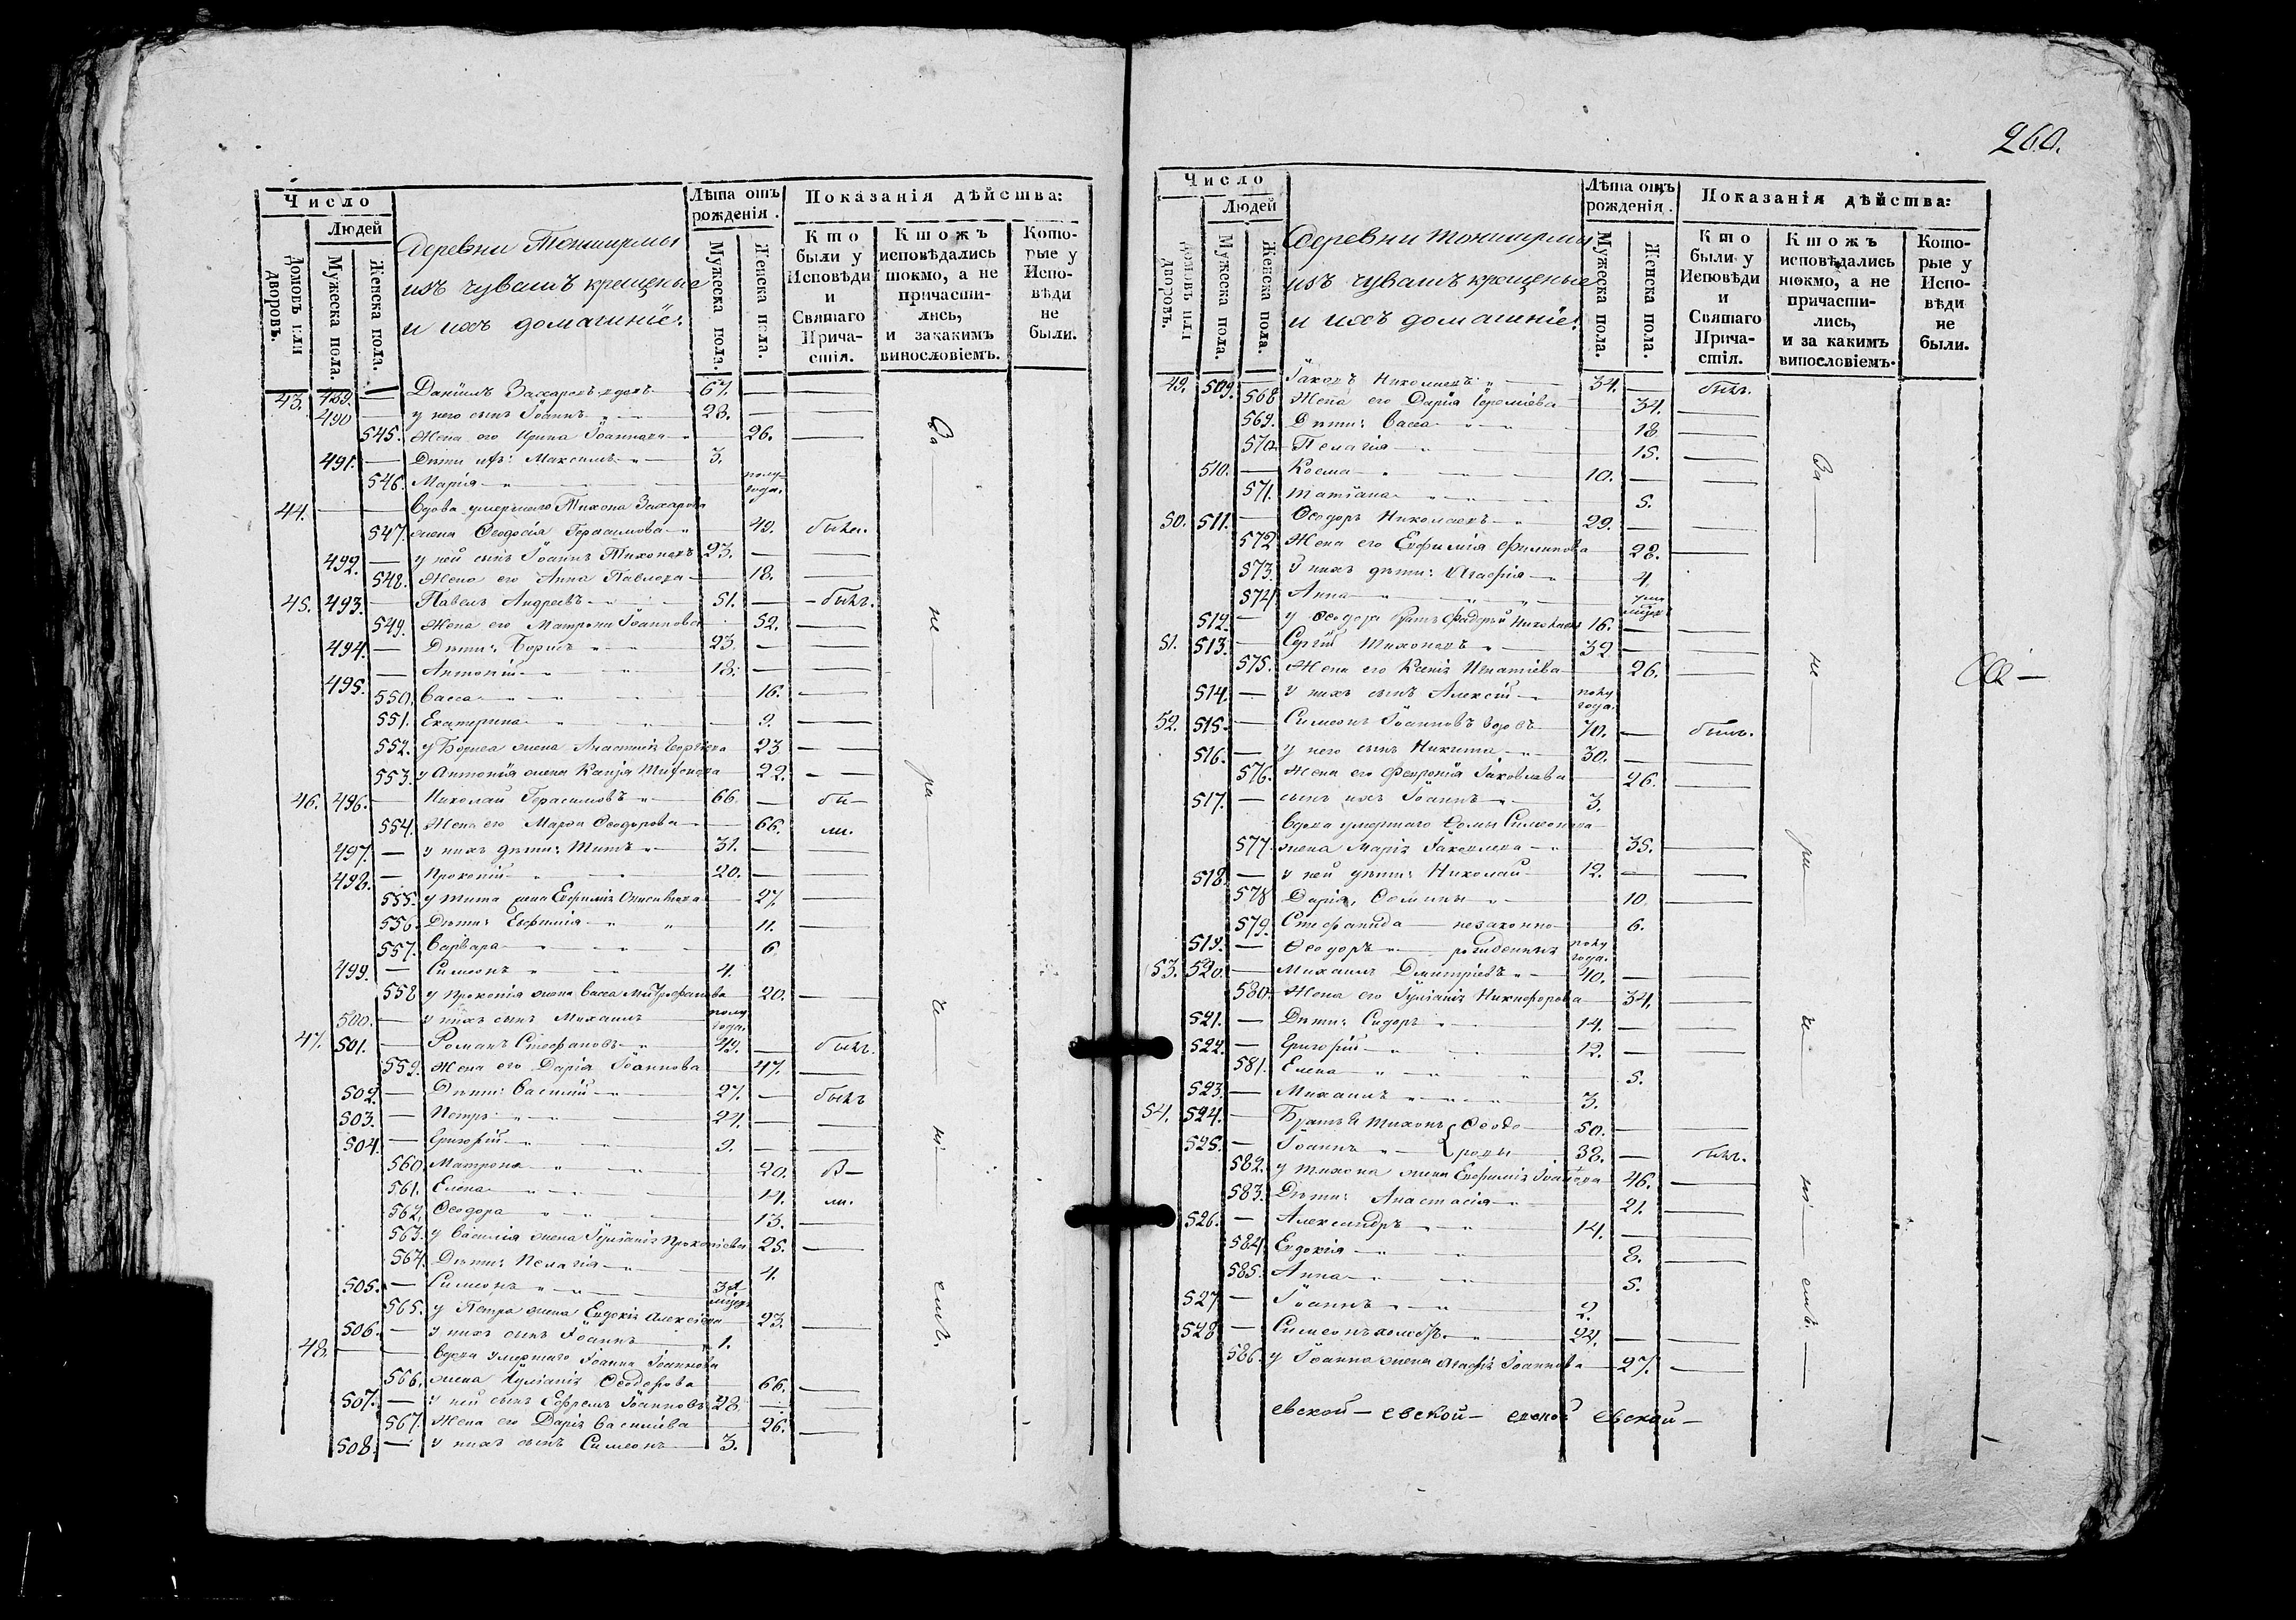 260.
Число
Людей
Домовъ или дворовъ.
Мужеска пола.
Женска пола.
Деревни Тоншермы
изъ чувашъ крещеные
и ихъ домашніе:
Лѣта отъ рожденія.
Мужеска пола.
Женска пола.
Показанія дѣйства:
Кто были у Исповѣди и Святаго Причастія.
Ктожъ исповѣдались токмо, а не причастились, и закакимъ винословіемъ.
Которые у Исповѣди не были.
43. 489. — Даніилъ Захаровъ вдовъ 67.
490 — у него сынъ Іоаннъ 28.
545. Жена его Ирина Іоаннова 26.
491. — Дѣти ихъ: Максимъ 3.
546. Марія полугода.
44. — Вдова умершаго Тихона Захарова
547. жена Ѳеодосія Герасимова 49. была.
492. — у ней сынъ Іоаннъ Тихоновъ 23.
548. Жена его Анна Павлова 18.
45. 493. — Павелъ Андреевъ 51. былъ.
549. Жена его Матрона Іоаннова 52.
494. — Дѣти: Борисъ 23.
495. — Антоній 18.
550. Васса 16.
551. Екатерина 9.
552. у Бориса жена Анастасія Георгіева 23
553. у Антонія жена Ксенія Тифонова 22.
46. 496. — Николай Герасимовъ 66. бы-
554. Жена его Марѳа Ѳеодорова 66. ли.
497. — у нихъ дѣти: Титъ 31.
498. — Прокопій 20.
555. у Тита жена Евфимія 27.
556. Дѣти: Евфимія 11.
557. Варвара 6
499. — Симеонъ 4.
558 у Прокопія жена Васса Митрофанова 20.
500. — у нихъ сынъ Михаилъ полугода.
47. 501. — Романъ Стефановъ 49. былъ.
559. Жена его Дарія Іоаннова 47.
502. — Дѣти: Василій 27. былъ
503. — Петръ 24.
504. — Григорій 9.
560. Матрона 20. бы-
561. Елена 14. ли.
562. Ѳеодора 13.
563. у Василія жена Іуліанія Прокопіева 25.
564. Дѣти: Пелагія 4.
505. — Симеонъ
565. у Петра жена Евдокія Алексіева 23.
506. — у нихъ сынъ Іоаннъ 1.
48. — Вдова умершаго Іоанна Іоаннова
566. жена Іуліанія Ѳеодорова 66.
507. — у ней сынъ Ефремъ Іоанновъ 28
567. Жена его Дарія Василіева 26.
508. — у нихъ сынъ Симеонъ 3.
За не ра че ні емъ.
Число
Людей
Домовъ или дворовъ.
Мужеска пола.
Женска пола.
Деревни Тоншермы
изъ чувашъ крещеные
и ихъ домашніе:
Лѣта отъ рожденія.
Мужеска пола.
Женска пола.
Показанія дѣйства:
Кто были у Исповѣди и Святаго Причастія.
Ктожъ исповѣдались токмо, а не причастились, и за какимъ винословіемъ.
Которые у Исповѣди не были.
49. 509. — Іаковъ Николаевъ 34. былъ.
568 Жена его Дарія Іереміева 34.
569. Дѣти: Васса 18
570. Пелагія 15.
510. — Косма 10.
571. Татіана 5.
50. 511. — Ѳеодоръ Николаевъ 29.
572 Жена его Евфимія Филипова 28.
573. У нихъ дѣти: Агафія 4.
574 Анна
512. — у Ѳеодора братъ Николаевъ 16.
51. 513. — Сергій Тихоновъ 32
575. Жена его Ксенія Игнатіева 26.
514. — у нихъ сынъ Алексій полугода.
52. 515. — Симеонъ Іоанновъ вдовъ 70. былъ.
516. — у него сынъ Никита 30.
576. Жена его Февронія Іаковлева 26.
517. — сынъ ихъ Іоаннъ 3.
Вдова умершаго Ѳомы Симеонова
577. жена Марія Іаковлева 35.
518. — у ней дѣти: Николай 12.
578 Дарія, Ѳомины 10
579. Стефанида незаконно- 6.
519. — Ѳеодоръ рожденныя полугода.
53. 520. — Михаилъ Димитріевъ 40.
580. Жена его Іуліанія Никифорова 34.
521. — Дѣти: Сидоръ 14.
522. — Григорій 12.
581. Елена 5.
523. — Михаилъ 3.
54. 524. — Братья Тихонъ Ѳеодо- 50.
525. — Іоаннъ ровы 38. былъ.
582. у Тихона жена Евфимія 46.
583. Дѣти: Анастасія 21.
526. — Александръ 14.
584. Евдокія 8.
585. Анна 5.
527 — Іоаннъ 2.
528 — Симеонъ холостъ. 24.
586. у Іоанна жена Агафія Іоаннова 27.
За не ра че ні емъ.
евской — евской — евской евской —